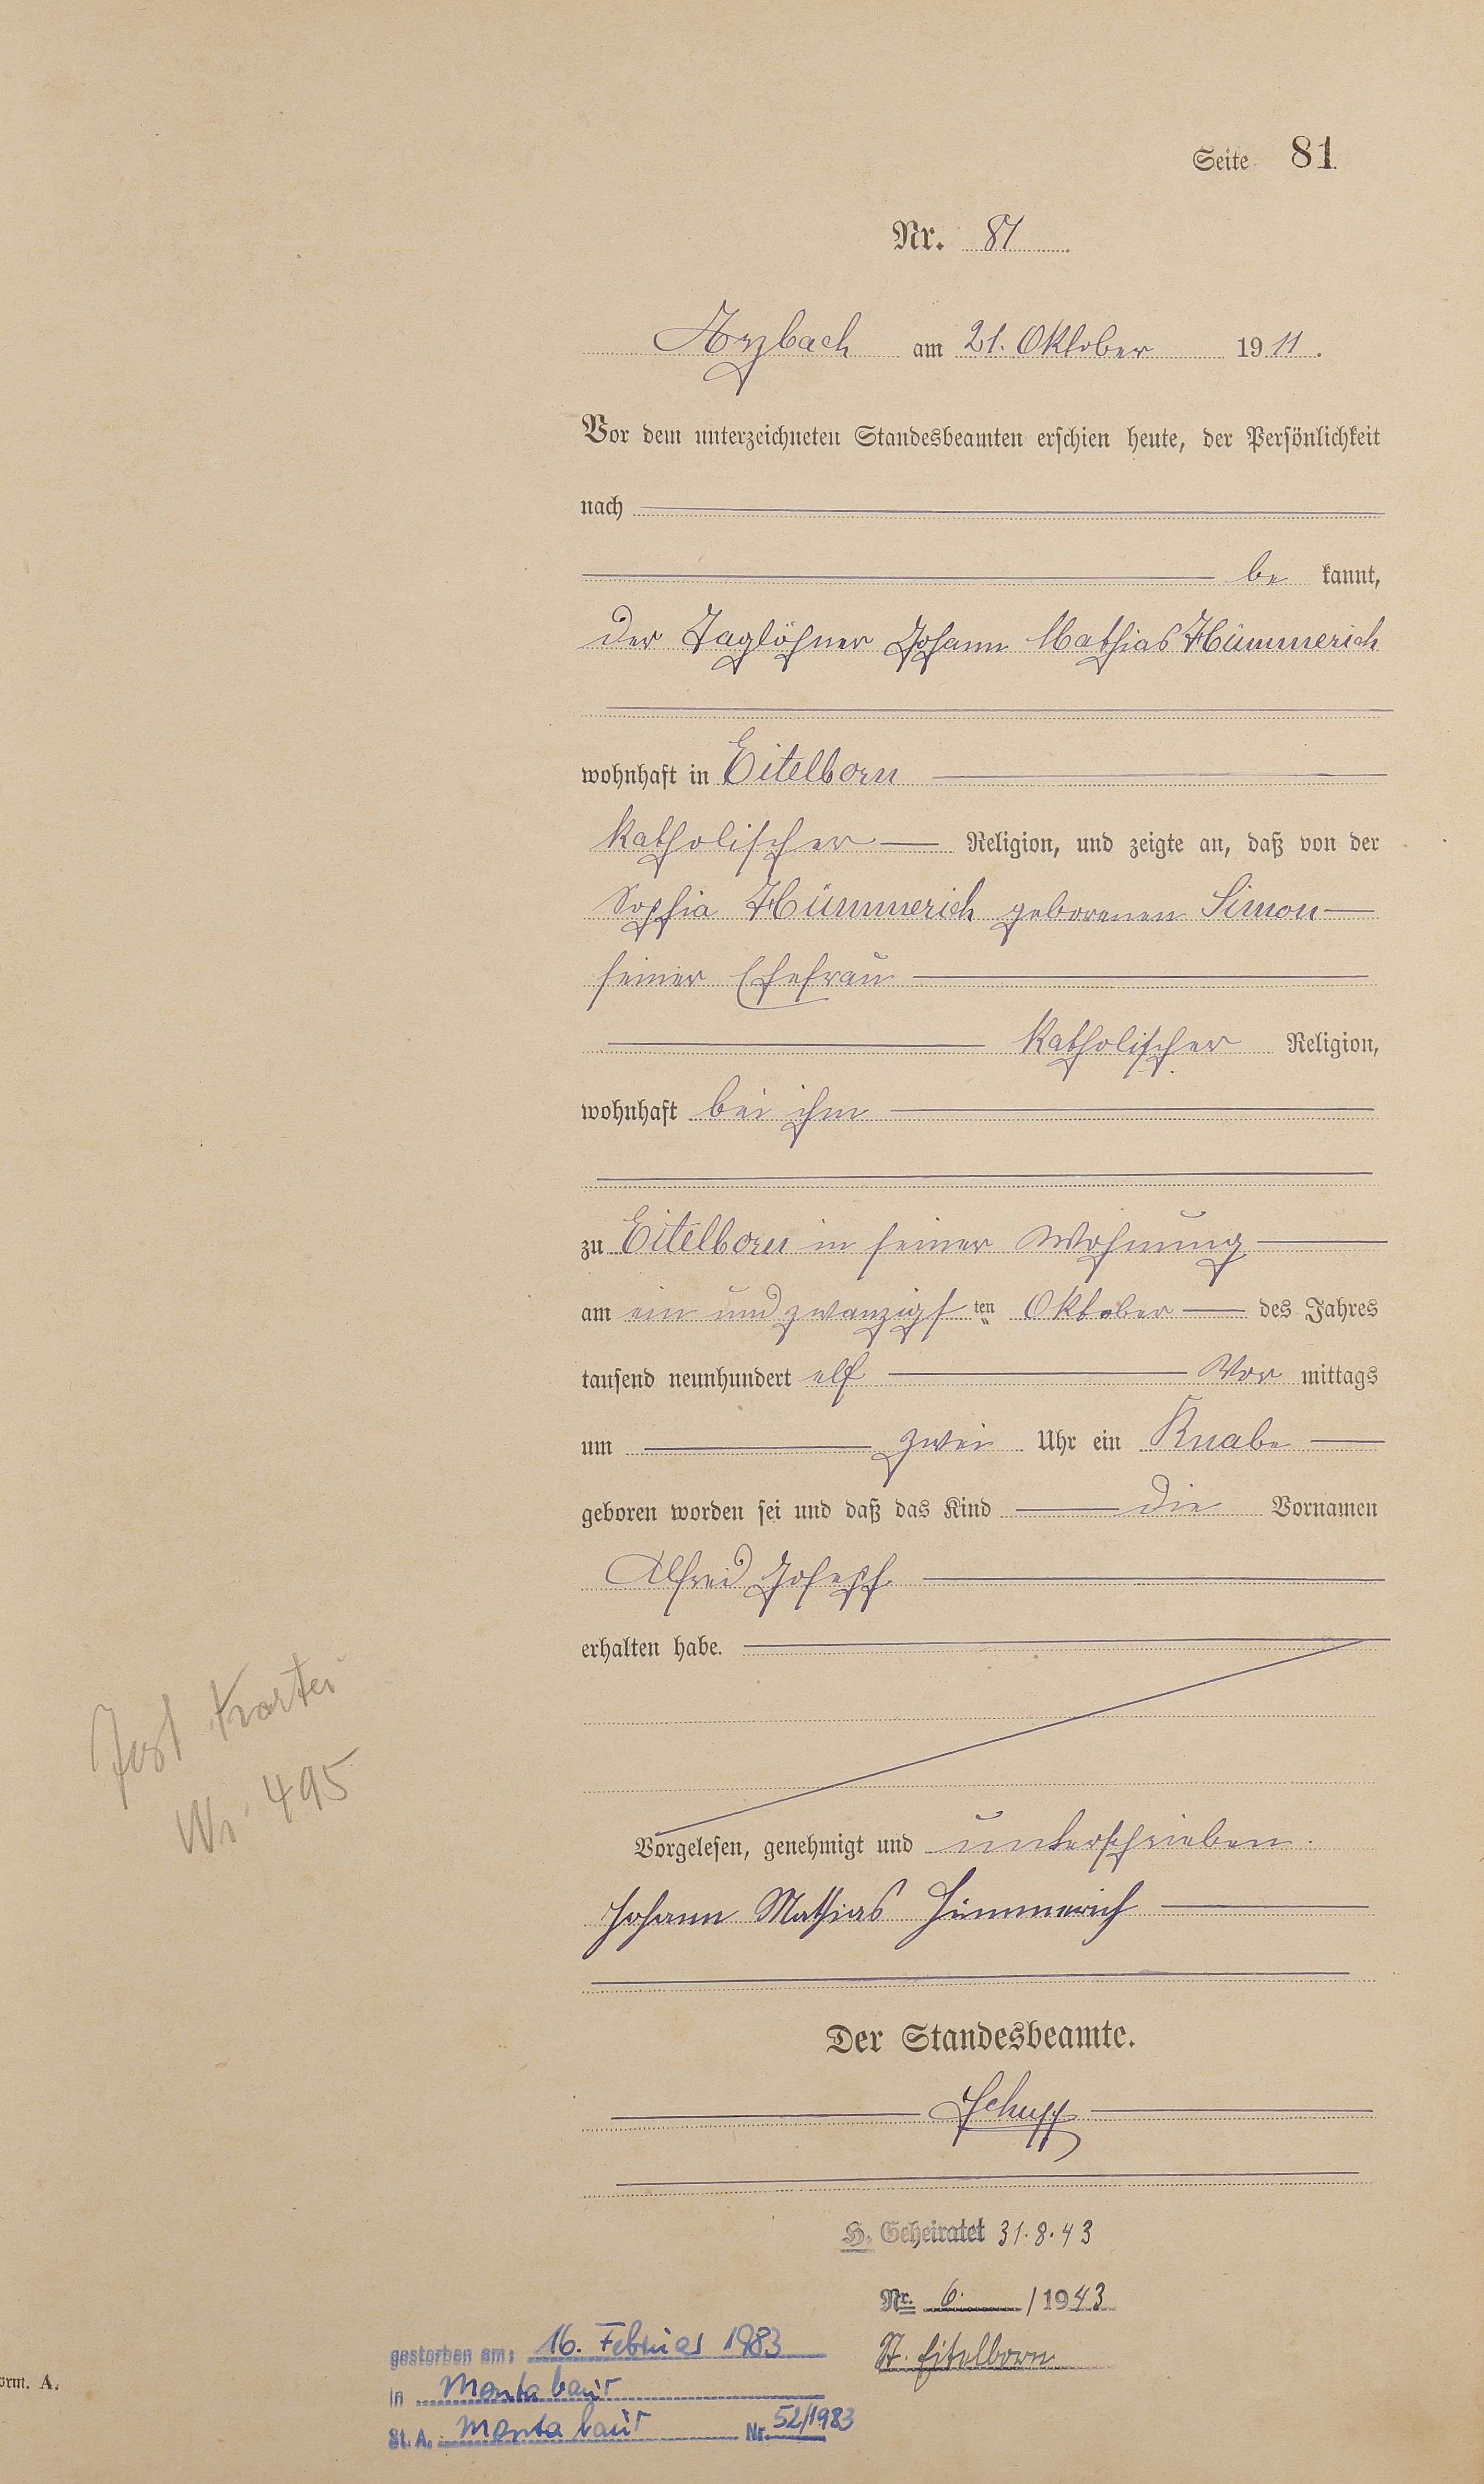 Seite 81
Nr. 81
Arzbach am 21. Oktober 1911.
Vor dem unterzeichneten Standesbeamten erschien heute, der Persönlichkeit
nach
be kannt,
der Taglöhner Johann Mathias Hümmerich
wohnhaft in Eitelborn
katholischer Religion, und zeigte an, daß von der
Sophia Hümmerich geborenen Simon
seiner Ehefrau
katholischer Religion,
wohnhaft bei ihm
zu Eitelborn in seiner Wohnung
am ein und zwanzigsten Oktober des Jahres
tausend neunhundert elf Vor mittags
um zwei Uhr ein Knabe
geboren worden sei und daß das Kind die Vornamen
Alfred Joseph
erhalten habe.
Kartei
Nr. 495
Vorgelesen, genehmigt und unterschrieben.
Johann Mathias Hümmerich
Der Standesbeamte.
Schupp
H. Geheiratet 31.8.43
Nr. 6. /1943
St. Eitelborn
gestorben am: 16. Februar 1983
in Montabaur
St. A. Montabaur Nr. 52/1983
orm. A.